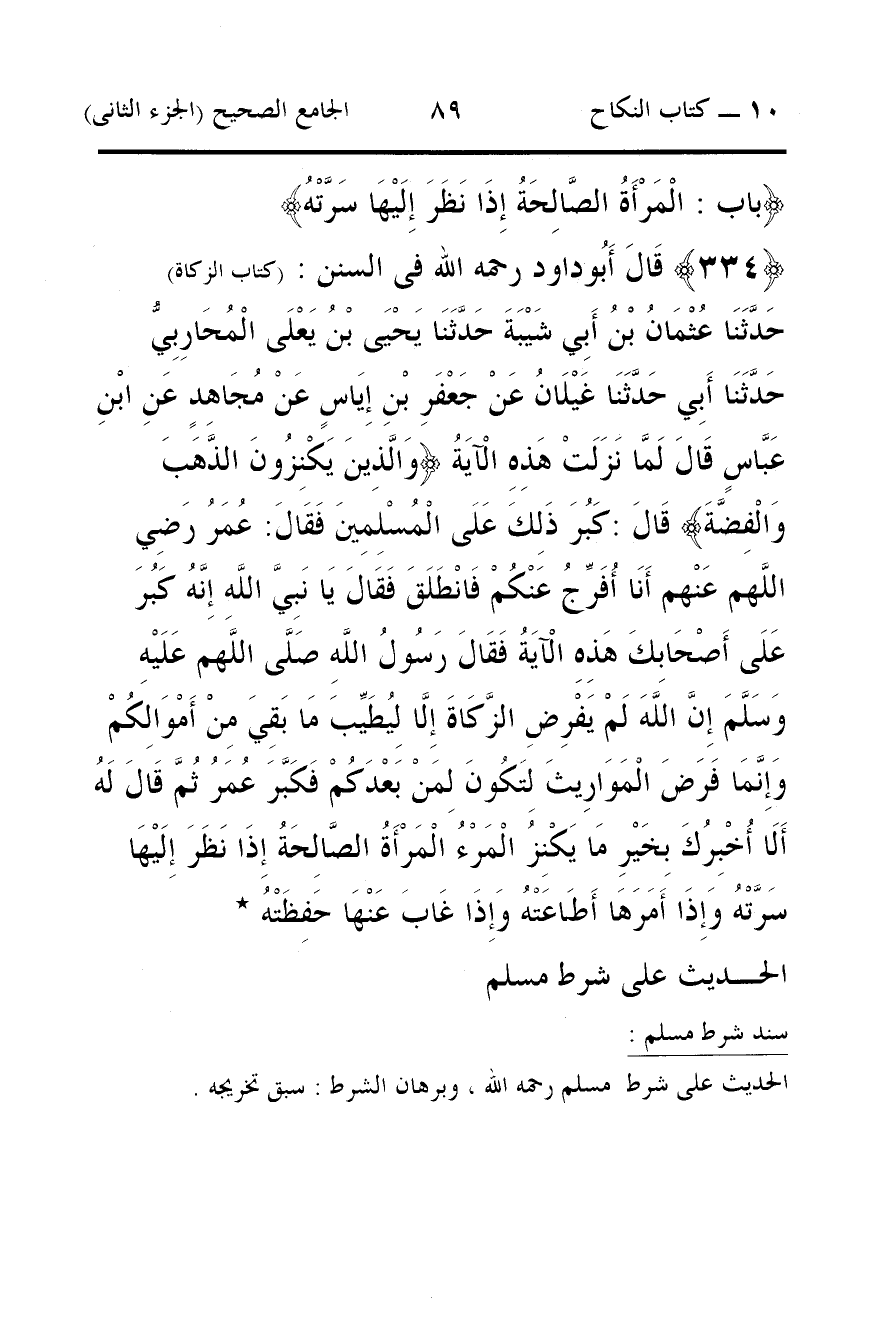 ١٠ ــ كتاب النكاح ٨٩ الجامع الصحيح (الجزء الثانى)
﴿باب : الْمَرْأَةُ الصَّالِحَةُ إِذَا نَظَرَ إِلَيْهَا سَرَّتْهُ﴾
﴿٣٣٤﴾ قَالَ أَبُوداود رحمه الله فى السنن : (كتاب الزكاة)
حَدَّثَنَا عُثْمَانُ بْنُ أَبِي شَيْبَةَ حَدَّثَنَا يَحْيَى بْنُ يَعْلَى الْمُحَارِبِيُّ
حَدَّثَنَا أَبِي حَدَّثَنَا غَيْلَانُ عَنْ جَعْفَرِ بْنِ إِيَاسٍ عَنْ مُجَاهِدٍ عَنِ ابْنِ
عَبَّاسٍ قَالَ لَمَّا نَزَلَتْ هَذِهِ الْآيَةُ ﴿وَالَّذِينَ يَكْنِزُونَ الذَّهَبَ
وَالْفِضَّةَ﴾ قَالَ :كَبُرَ ذَلِكَ عَلَى الْمُسْلِمِينَ فَقَالَ: عُمَرُ رَضِي
اللَّهم عَنْهم أَنَا أُفَرِّجُ عَنْكُمْ فَانْطَلَقَ فَقَالَ يَا نَبِيَّ اللَّهِ إِنَّهُ كَبُرَ
عَلَى أَصْحَابِكَ هَذِهِ الْآيَةُ فَقَالَ رَسُولُ اللَّهِ صَلَّى اللَّهم عَلَيْهِ
وَسَلَّمَ إِنَّ اللَّهَ لَمْ يَفْرِضِ الزَّكَاةَ إِلَّا لِيُطَيِّبَ مَا بَقِيَ مِنْ أَمْوَالِكُمْ
وَإِنَّمَا فَرَضَ الْمَوَارِيثَ لِتَكُونَ لِمَنْ بَعْدَكُمْ فَكَبَّرَ عُمَرُ ثُمَّ قَالَ لَهُ
أَلَا أُخْبِرُكَ بِخَيْرِ مَا يَكْنِزُ الْمَرْءُ الْمَرْأَةُ الصَّالِحَةُ إِذَا نَظَرَ إِلَيْهَا
سَرَّتْهُ وَإِذَا أَمَرَهَا أَطَاعَتْهُ وَإِذَا غَابَ عَنْهَا حَفِظَتْهُ *
الحـــديث على شرط مسلم
سند شرط مسلم :
الحديث على شرط مسلم رحمه الله ، وبرهان الشرط : سبق تخريجه .